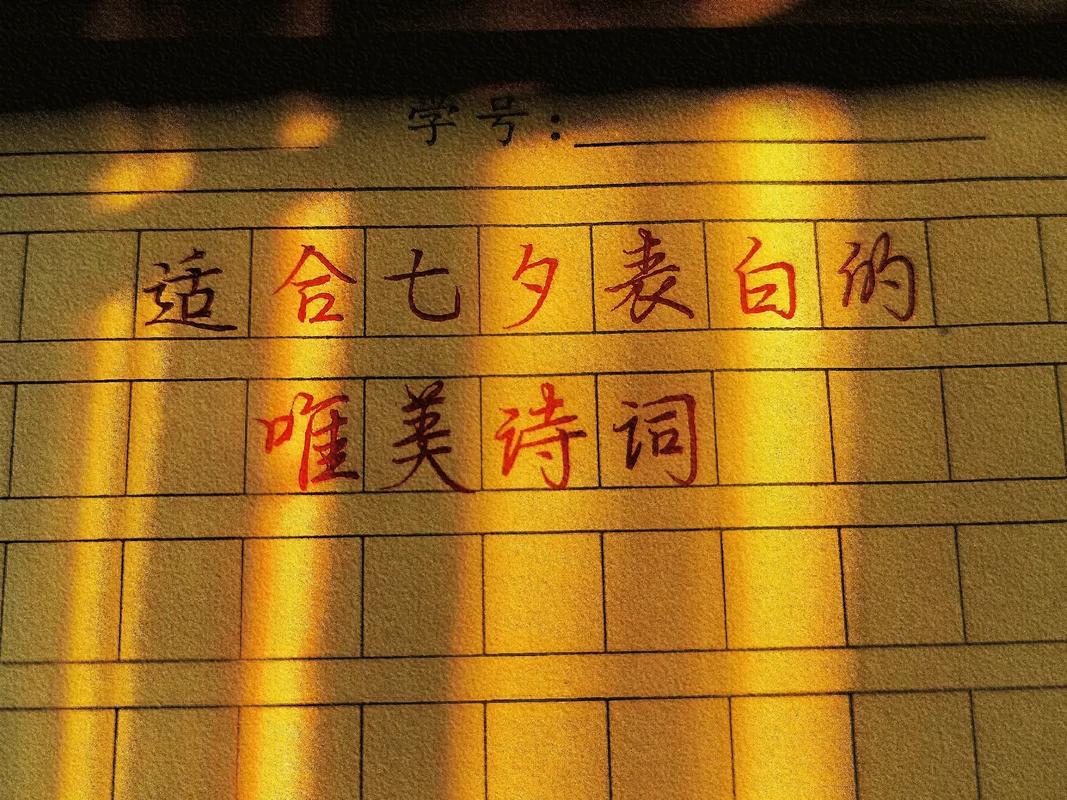 学号:
适合七夕表白的
唯美诗词